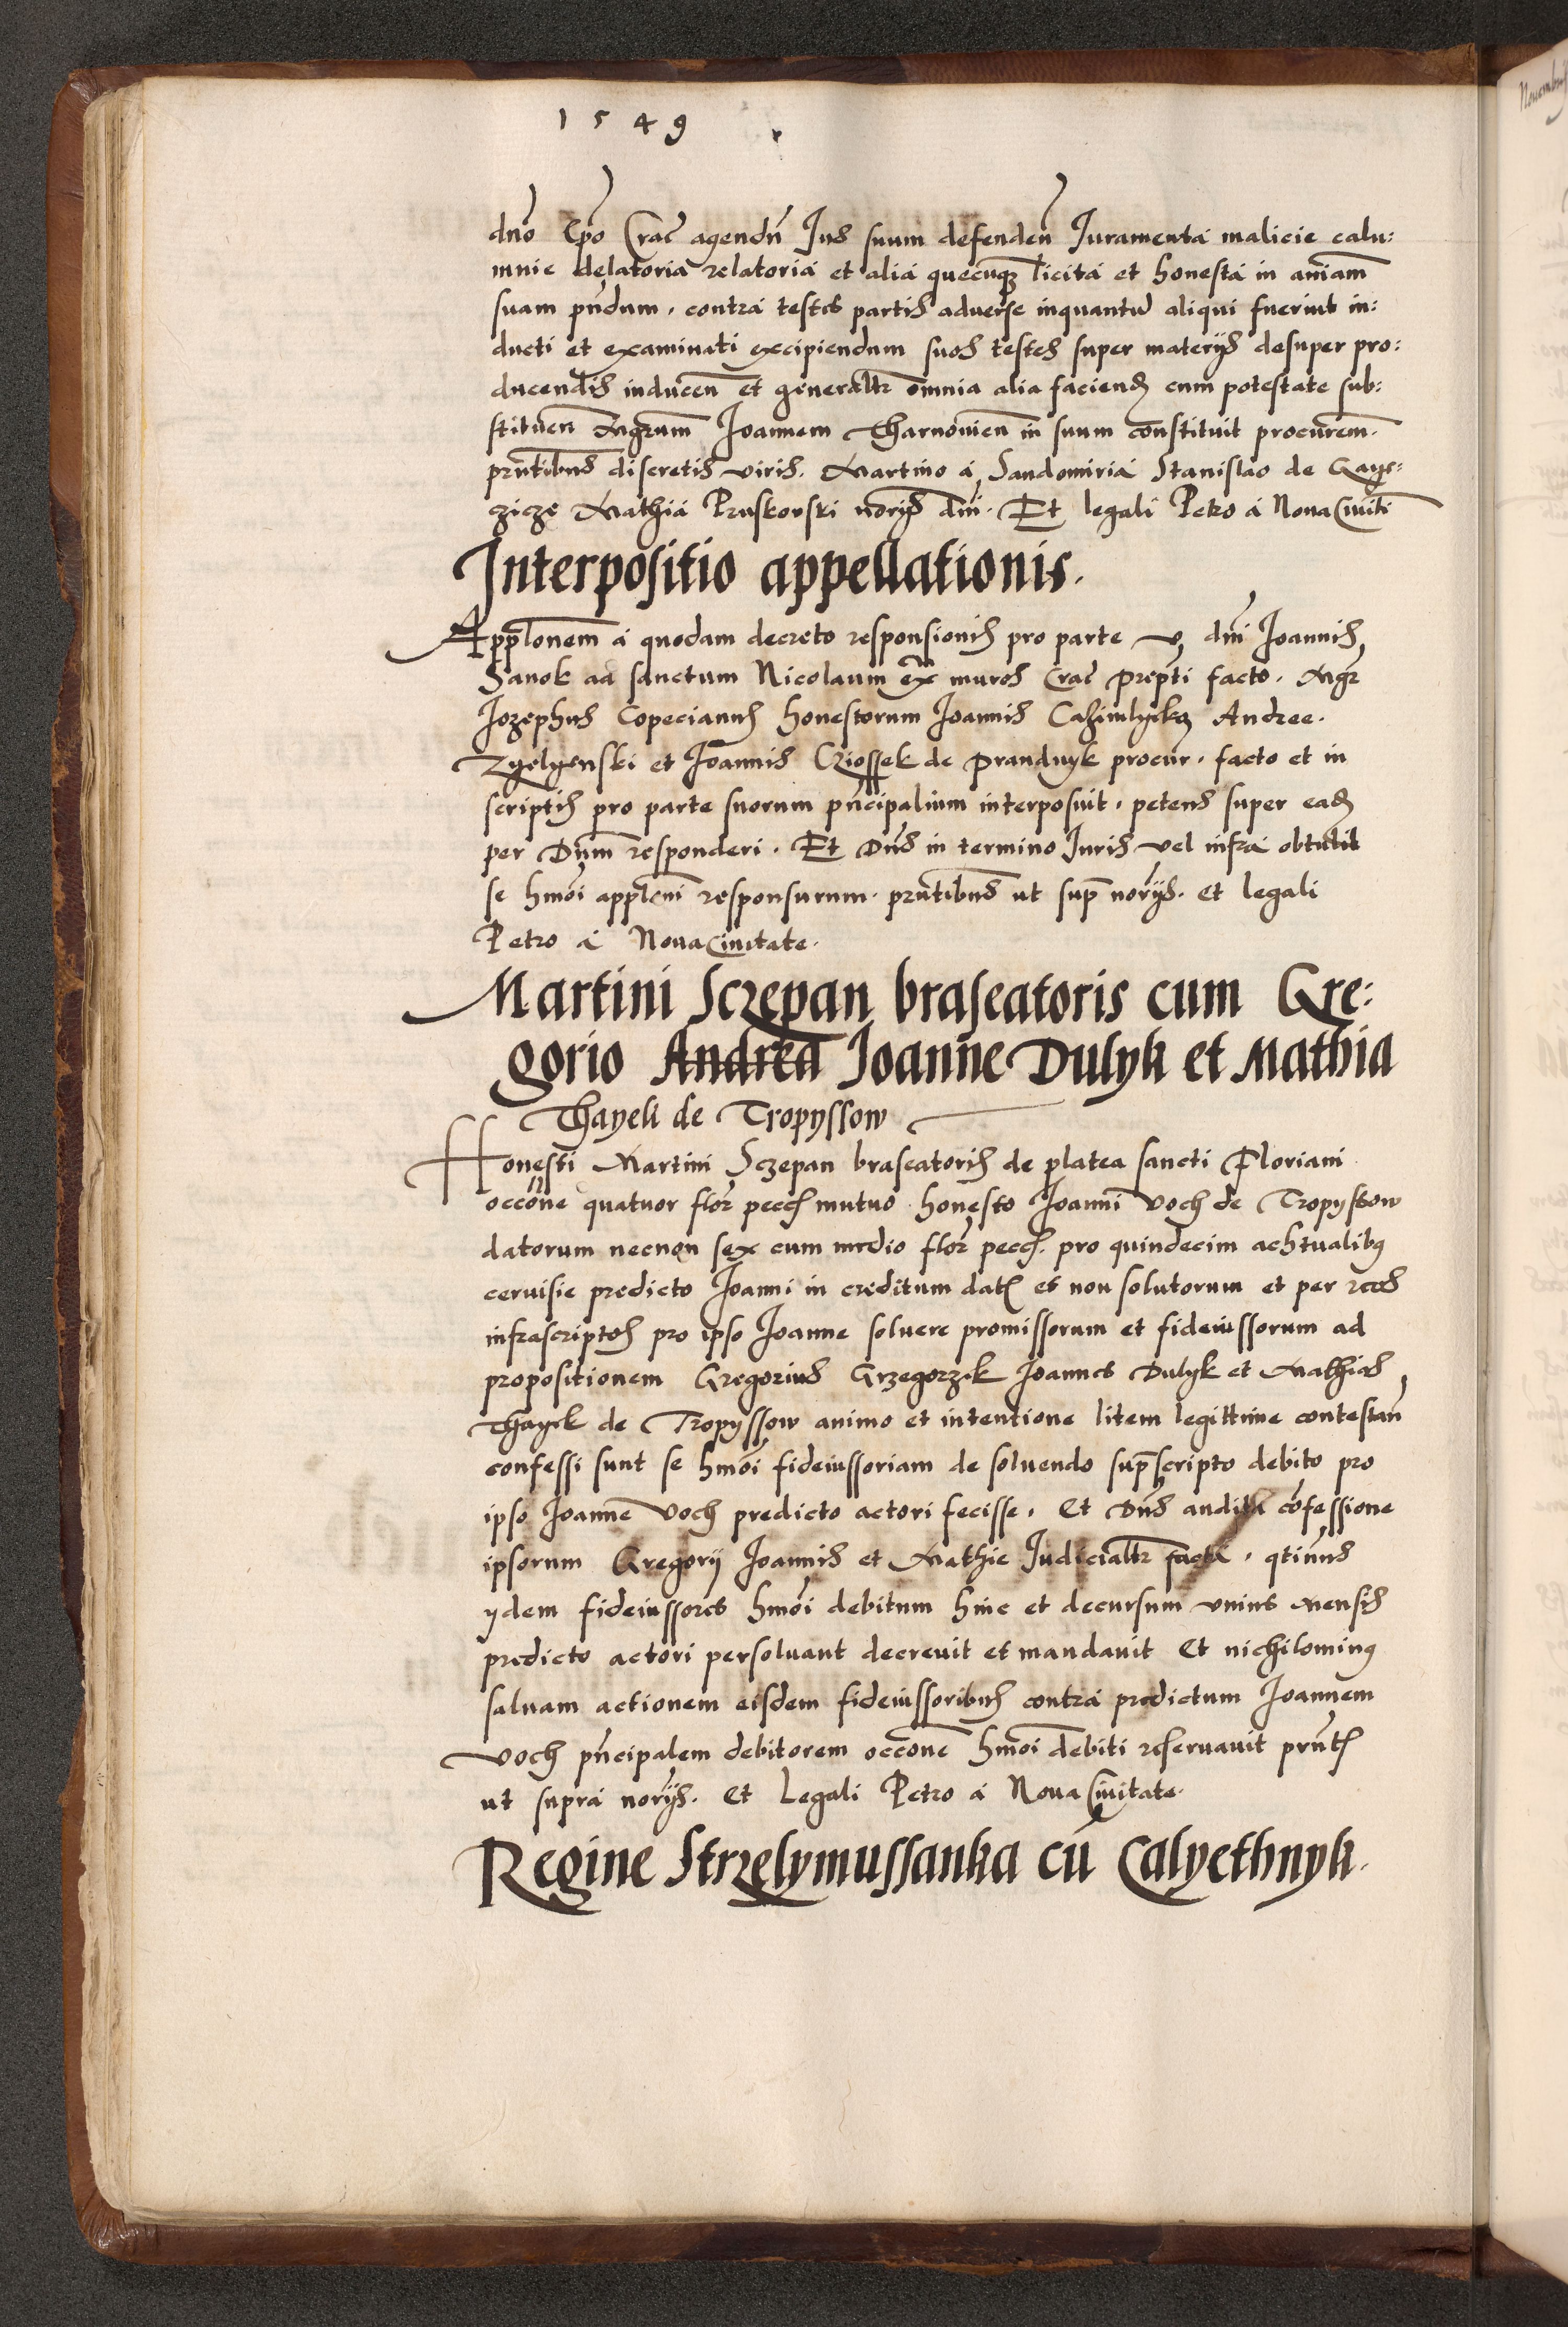 1549
dno Epo Crac agendn Jus suum defenden Juramenta malicie calu:
mnie delatoria relatoria et alia quecunqz licita et honesta in aniam
suam pndum. contra testes partis aduerse inquantum aliqui fuerint in:
ducti et examinati excipiendum suos testes super materijs desuper pro:
ducendis inducen et generaltr omnia alia faciend cum potestate sub:
stituen Mgrum Joannem Tharnouien in suum constituit procurem.
prntibus discretis viris. Martino a Sandomiria Stanislao de
Mathia Pruskovski norijs dni. Et legali Petro a Noua Ciuitti
Interpositio appellationis.
Applonem a quodam decreto responsionis pro parte v. dni Joannis
Sanok ad sanctum Nicolaum ex muros Crac prepti facto. Mgr
Jozephus Copecianus honestorum Joannis Andree.
Zyelyenski et Joannis Cziossek de Prandnyk procur. facto et in
scriptis pro parte suorum pncipalium interposuit. petens super ead
per Dnm responderi. Et Dns in termino Juris vel infra obtulit
se hmoi applonni responsurum. prntibus ut sup norijs. et legali
Petro a Noua Ciuitate.
Martini Sczepan braseatoris cum Gre:
gorio Andrea Joanne Dulyk et Mathia
Thayek de Tropyssow
Honesti Martini Sczepan braseatoris de platea sancti Floriani
occone quatuor flor pecc mutuo honesto Joanni Voch de Tropyssow
datorum necnon sex cum medio flor pecc. pro quindecim achtualibus
ceruisie predicto Joanni in creditum dat et non solutorum et per reos
infrascriptos pro ipso Joanne soluere promissorum et fideiussorum ad
propositionem Gregorius Grzegorzek Joannes Dulyk et Mathias
Thayek de Tropyssow animo et intentione litem legittime contestan
confessi sunt se hmoi fideiussoriam de soluendo supscripto debito pro
ipso Joanne Voch predicto actori fecisse. Et Dns audita cofessione
ipsorum Gregorij Joannis et Mathie Judicialtr facta. qtinus
ydem fideiussores hmoi debitum hinc et decursum vnius mensis
predicto actori persoluant decreuit et mandauit Et nichilominus
saluam actionem eisdem fideiussoribus contra predictum Joannem
Voch pncipalem debitorem occone hmoi debiti reseruauit prnt
ut supra norijs. Et Legali Petro a Noua Ciuitate.
Regine Strzelymussanka cu Calyethnyk.